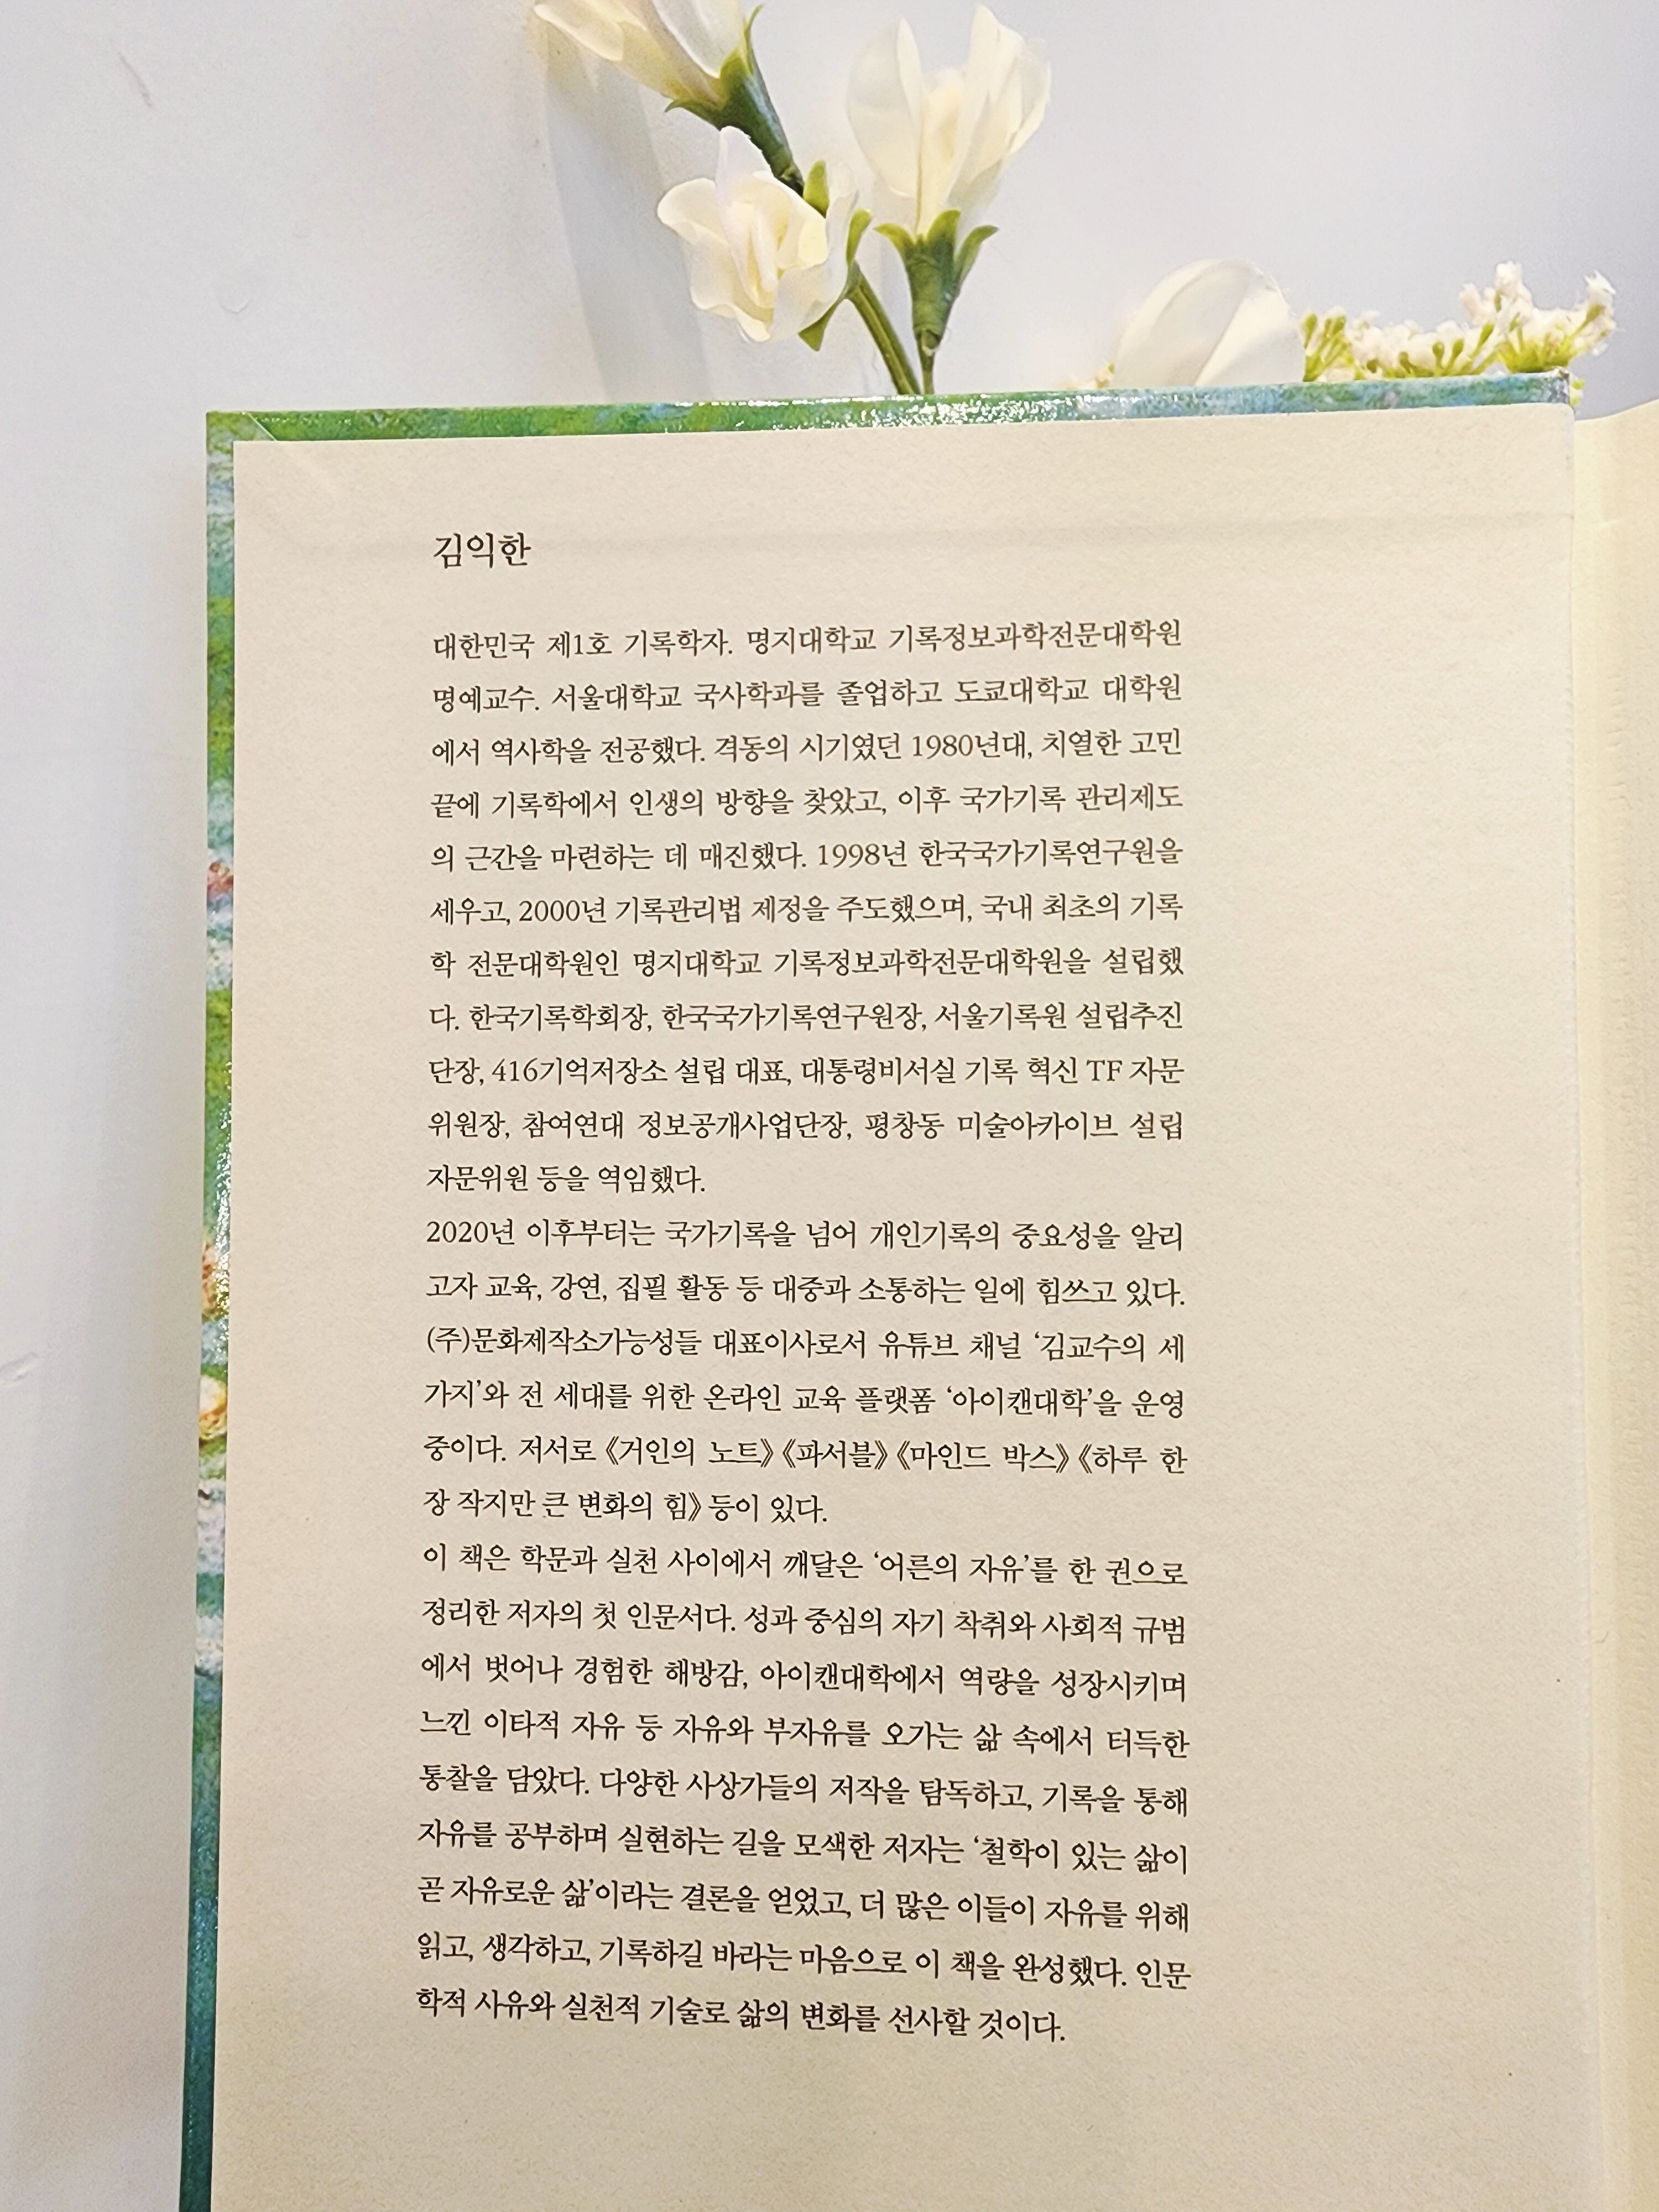 김익한
대한민국 제1호 기록학자. 명지대학교 기록정보과학전문대학원
명예교수. 서울대학교 국사학과를 졸업하고 도쿄대학교 대학원
에서 역사학을 전공했다. 격동의 시기였던 1980년대, 치열한 고민
끝에 기록학에서 인생의 방향을 찾았고, 이후 국가기록 관리제도
의 근간을 마련하는 데 매진했다. 1998년 한국국가기록연구원을
세우고, 2000년 기록관리법 제정을 주도했으며, 국내 최초의 기록
학 전문대학원인 명지대학교 기록정보과학전문대학원을 설립했
다. 한국기록학회장, 한국국가기록연구원장, 서울기록원 설립추진
단장, 416기억저장소 설립 대표, 대통령비서실 기록 혁신 TF 자문
위원장, 참여연대 정보공개사업단장, 평창동 미술아카이브 설립
자문위원 등을 역임했다.
2020년 이후부터는 국가기록을 넘어 개인기록의 중요성을 알리
고자 교육, 강연, 집필 활동 등 대중과 소통하는 일에 힘쓰고 있다.
(주)문화제작소가능성들 대표이사로서 유튜브 채널 ‘김교수의 세
가지’와 전 세대를 위한 온라인 교육 플랫폼 ‘아이캔대학’을 운영
중이다. 저서로 《거인의 노트》 《파서블》 《마인드 박스》 《하루 한
장 작지만 큰 변화의 힘》 등이 있다.
이 책은 학문과 실천 사이에서 깨달은 ‘어른의 자유’를 한 권으로
정리한 저자의 첫 인문서다. 성과 중심의 자기 착취와 사회적 규범
에서 벗어나 경험한 해방감, 아이캔대학에서 역량을 성장시키며
느낀 이타적 자유 등 자유와 부자유를 오가는 삶 속에서 터득한
통찰을 담았다. 다양한 사상가들의 저작을 탐독하고, 기록을 통해
자유를 공부하며 실현하는 길을 모색한 저자는 ‘철학이 있는 삶이
곧 자유로운 삶’이라는 결론을 얻었고, 더 많은 이들이 자유를 위해
읽고, 생각하고, 기록하길 바라는 마음으로 이 책을 완성했다. 인문
학적 사유와 실천적 기술로 삶의 변화를 선사할 것이다.